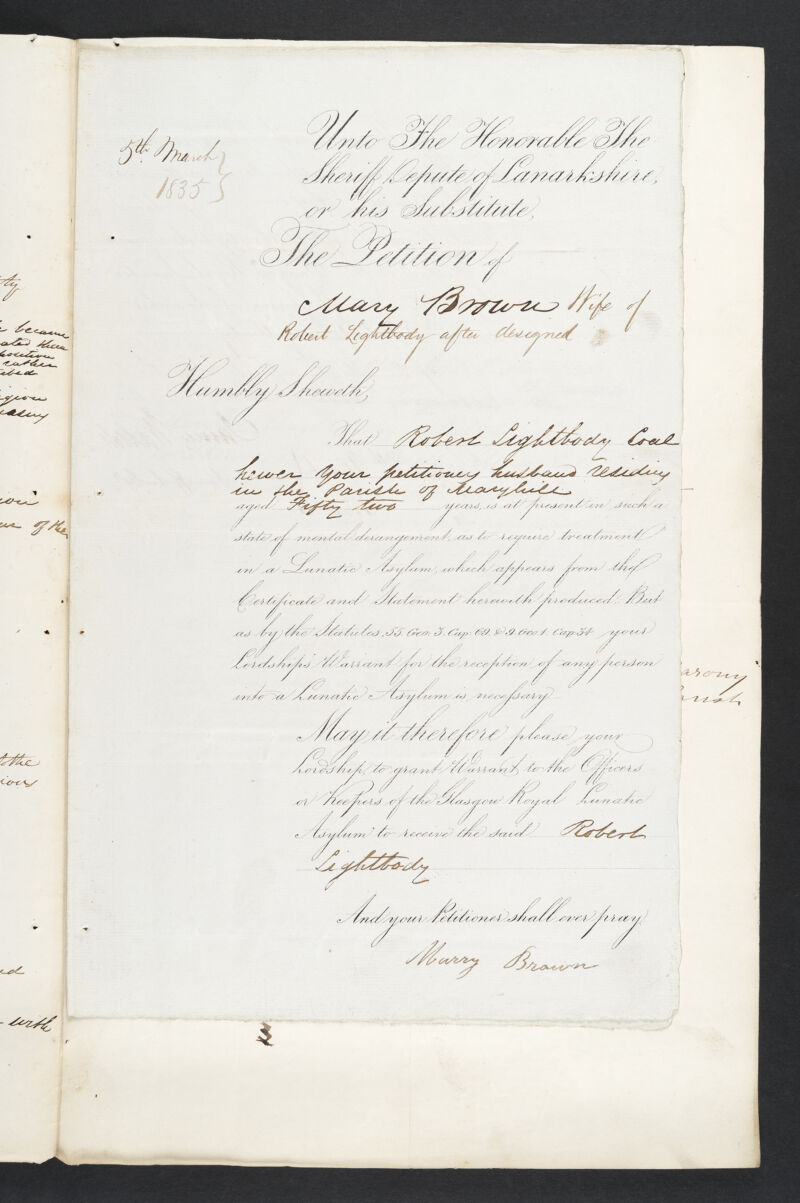 5th March
1835
Unto The Honorable The
Sheriff Depute of Lanarkshire,
or his Substitute,
The Petition of
Mary Brown Wife of
Robert Lightbody after designed
Humbly Sheweth,
That Robert Lightbody Coal
hewer Your petitioners husband residing
in the Parish of Maryhill
aged Fifty two years, is at present in such a
state of mental derangement as to require treatment
in a Lunatic Asylum, which appears from the
Certificate and Statement herewith produced. But
as by the Statutes, 55. Geo. 3. Cap. 69. & 9. Geo. 4. Cap. 34. your
Lordship's Warrant for the reception of any person
into a Lunatic Asylum is necessary
May it therefore please your
Lordship, to grant Warrant, to the Officers
or Keepers of the Glasgow Royal Lunatic
Asylum to receive the said Robert
Lightbody
And your Petitioner shall ever pray
Marry Brown
became
rather
of the
to the
with